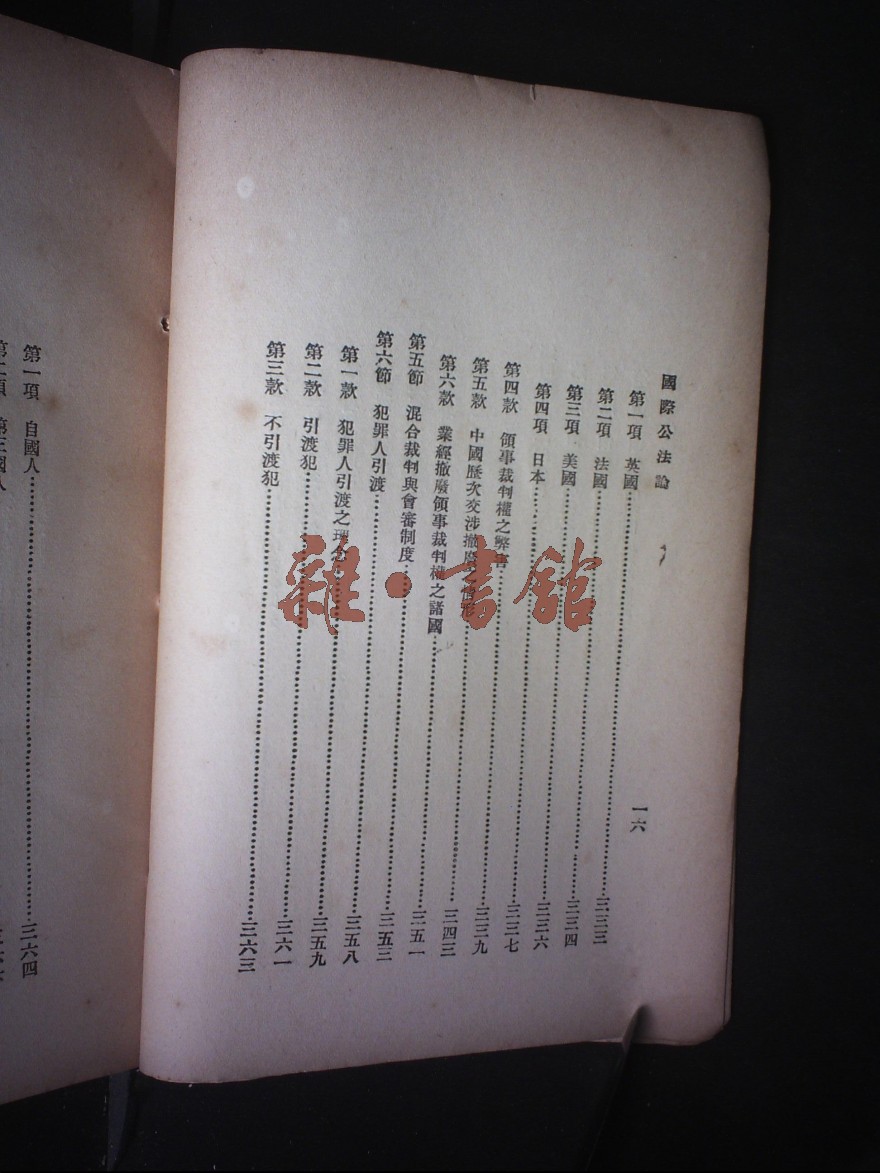 國際公法論
一六
第一項 英國……三三三
第二項 法國……三三四
第三項 美國……三三六
第四項 日本……三三七
第四款 領事裁判權之弊害……三三九
第五款 中國歷次交涉撤廢之情形……三四三
第六款 業經撤廢領事裁判權之諸國……三五一
第五節 混合裁判與會審制度……三五三
第六節 犯罪人引渡……三五八
第一款 犯罪人引渡之理念……三五九
第二款 引渡犯……三六一
第三款 不引渡犯……三六三
第一項 自國人……三六四
第二項 第三國人
雜·書館